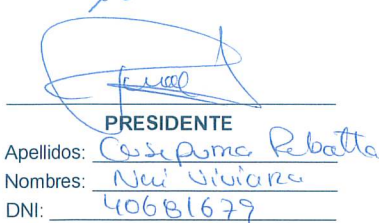 PRESIDENTE
Apellidos: Casepuma Rebatta
Nombres: Nui Viviana
DNI: 40681679